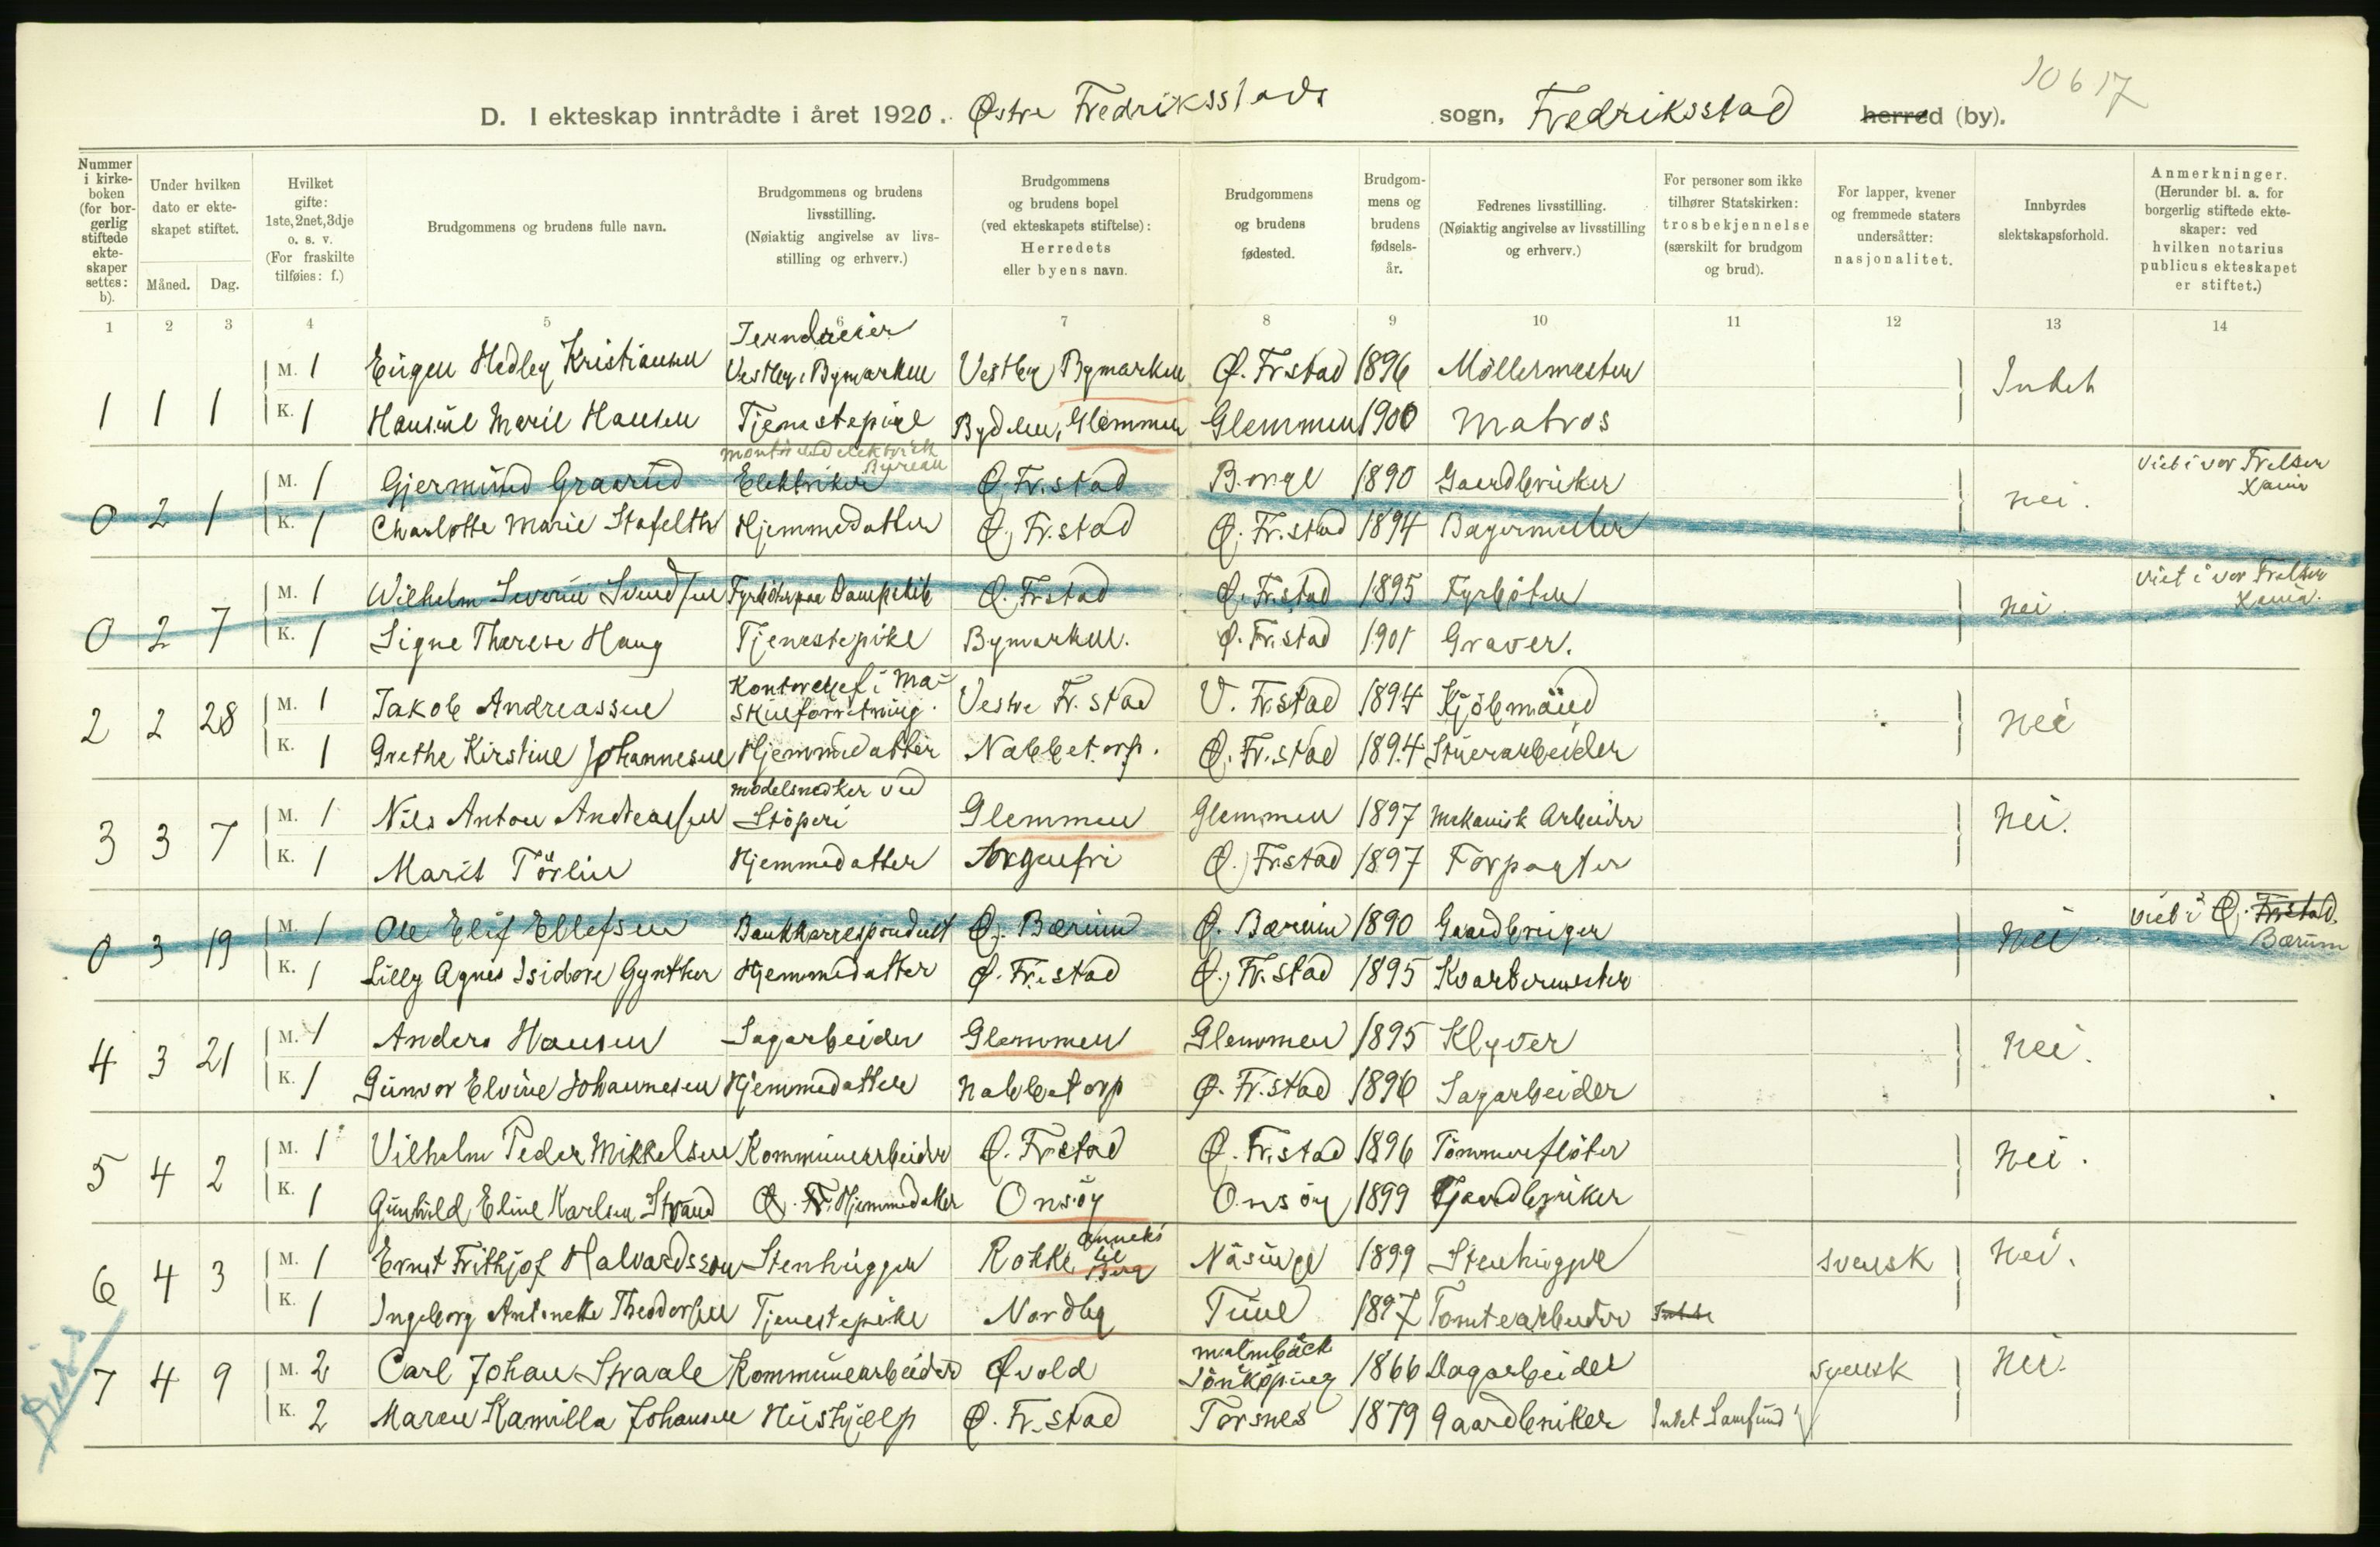 10617
D. I ekteskap inntrådte i året 1920. Østre Fredriksstads sogn, Fredriksstad herred (by).
Nummer i kirkeboken (for borgerlig stiftede ekteskaper settes: b).
Under hvilken dato er ekteskapet stiftet.
Måned. Dag.
Hvilket gifte: 1ste, 2net, 3dje o. s. v. (For fraskilte tilføies: f.)
Brudgommens og brudens fulle navn.
Brudgommens og brudens livsstilling. (Nøiaktig angivelse av livsstilling og erhverv.)
Brudgommens og brudens bopel (ved ekteskapets stiftelse): Herredets eller byens navn.
Brudgommens og brudens fødested.
Brudgommens og brudens fødselsår.
Fedrenes livsstilling. (Nøiaktig angivelse av livsstilling og erhverv.)
For personer som ikke tilhører Statskirken: trosbekjennelse (særskilt for brudgom og brud).
For lapper, kvener og fremmede staters undersåtter: nasjonalitet.
Innbyrdes slektskapsforhold.
Anmerkninger. (Herunder bl. a. for borgerlig stiftede ekteskaper: ved hvilken notarius publicus ekteskapet er stiftet.)
1 2 3 4 5 6 7 8 9 10 11 12 13 14
Jerndreier
M. 1 Eugen Hedley Kristiansen Vestby, Bymarken Vestby, Bymarken Ø. Fr.stad 1896 Möllermester Intet
1 1 1 K. 1 Hansine Marie Hansen Tjenestepige Bydelen, Glemmen Glemmen 1900 Matros
montör ved elektrisk Bureau
M. 1 Gjermund Graarud Elektriker Ø. Fr.stad Borge 1890 Gaardbruker nei. Viet i vor Frelser Xania
0 2 1 K. 1 Charlotte Marie Stafelth Hjemmedatter Ø. Fr.stad Ø. Fr.stad 1894 Bagermester
M. 1 Wilhelm Severin Svendsen Fyrböter paa Dampskib Ø. Fr.stad Ø. Fr.stad 1895 Fyrböter nei. viet i vor Frelser Xania.
0 2 7 K. 1 Signe Therese Haug Tjenestepike Bymarken. Ø. Fr.stad 1901 Graver.
M. 1 Jakob Andreassen Kontorchef i Maskinforretning. Vestre Fr.stad V. Fr.stad 1894 Kjöbmand nei
2 2 28 K. 1 Grethe Kirstine Johannesen Hjemmedatter Nabbetorp. Ø. Fr.stad 1894 Stuerarbeider
modelsnedker ved
M. 1 Nils Anton Andreassen Stöperi Glemmen Glemmen 1897 Mekanisk Arbeider Nei.
3 3 7 K. 1 Marit Törlin Hjemmedatter Sorgenfri Ø. Fr.stad 1897 Forpagter
M. 1 Ole Elif Ellefsen Bankkorrespondent Ø. Bærum Ø. Bærum 1890 Gaardbruger nei viet i Ø. Fr.stad. Bærum
0 3 19 K. 1 Lilly Agnes Isidore Gynther Hjemmedatter Ø. Fr.stad Ø. Fr.stad 1895 Kvartermester
M. 1 Anders Hansen Sagarbeider Glemmen Glemmen 1895 Klyver nei.
4 3 21 K. 1 Gunvor Elvine Johannesen Hjemmedatter Nabbetorp Ø. Fr.stad 1896 Sagarbeider
M. 1 Vilhelm Peder Mikkelsen Kommunearbeider Ø. Fr.stad Ø. Fr.stad 1896 Tömmerflöter Nei.
5 4 2 K. 1 Gunhild Eline Karlsen Strand Ø. Fr. Hjemmedatter Onsöy Onsöy 1899 Gaardbruker
M. 1 Ernst Frithjof Halvardsson Stenhugger Rokke anneks til Berg Näsinge 1899 Stenhugger svensk Nei.
6 4 3 K. 1 Ingeborg Antonette Theodorsen Tjenestepike Nordby Tune 1897 Tomtearbeider Intet
7 4 9 M. 2 Carl Johan Straale Kommunearbeider Øvold Malmbäck Jönköping 1866 Dagarbeider svensk Nei.
K. 2 Maren Kamilla Johansen Hushjælp Ø. Fr.stad Torsnes 1879 Gaardbruker Intet Samfund